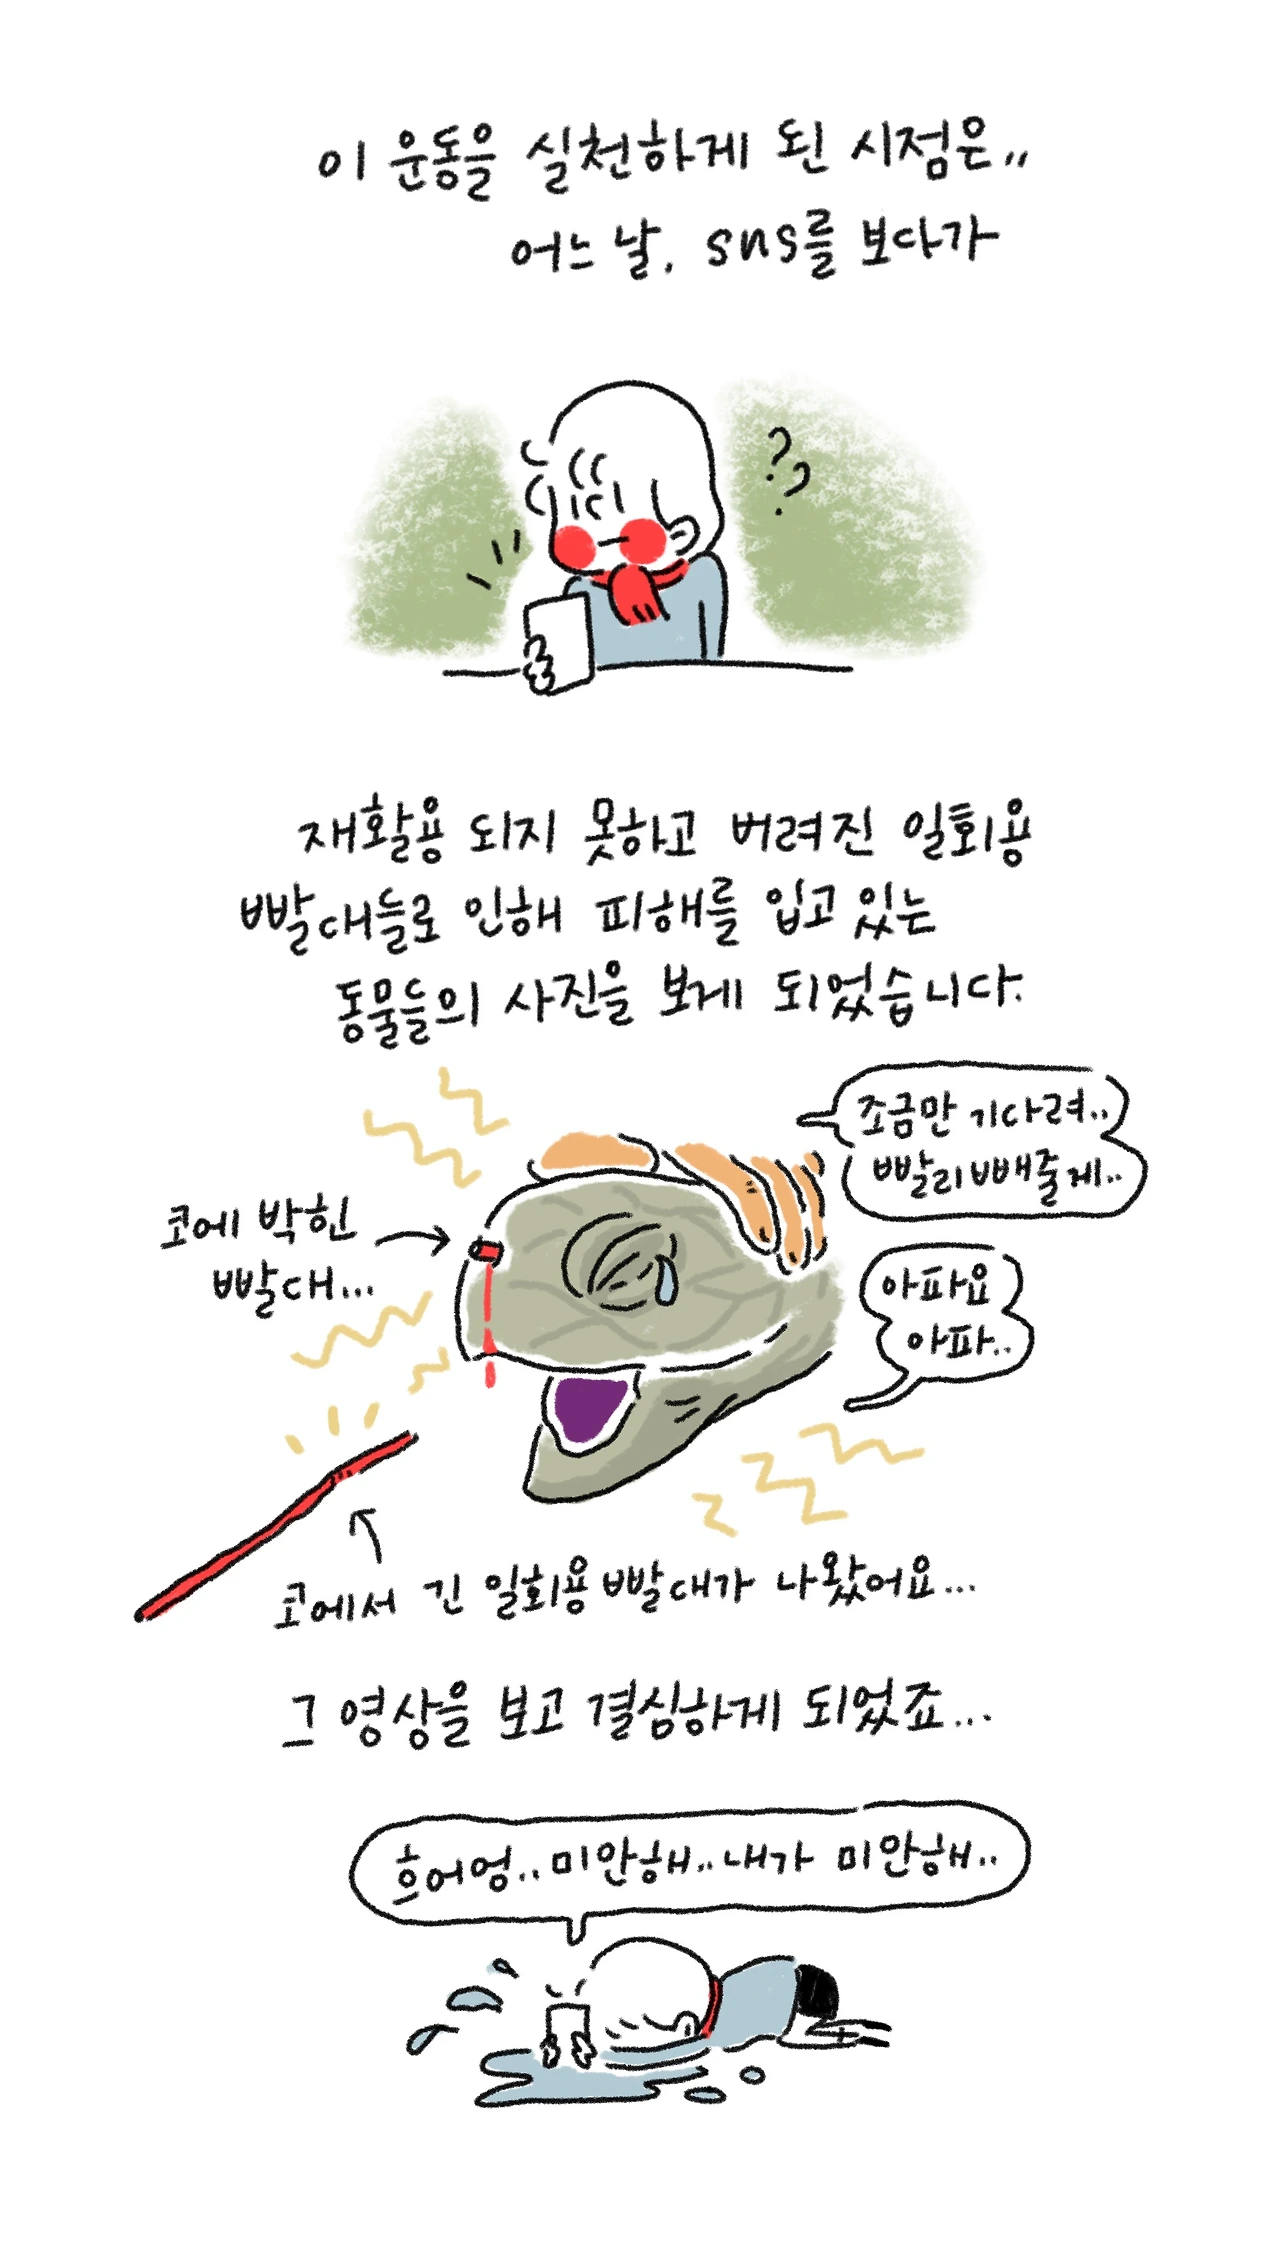 이 운동을 실천하게 된 시점은..
어느 날, sns를 보다가
??
재활용 되지 못하고 버려진 일회용
빨대들로 인해 피해를 입고 있는
동물들의 사진을 보게 되었습니다.
조금만 기다려..
빨리 빼줄게..
코에 박힌
빨대...
아파요
아파..
코에서 긴 일회용 빨대가 나왔어요...
그 영상을 보고 결심하게 되었죠...
흐어엉..미안해..내가 미안해..